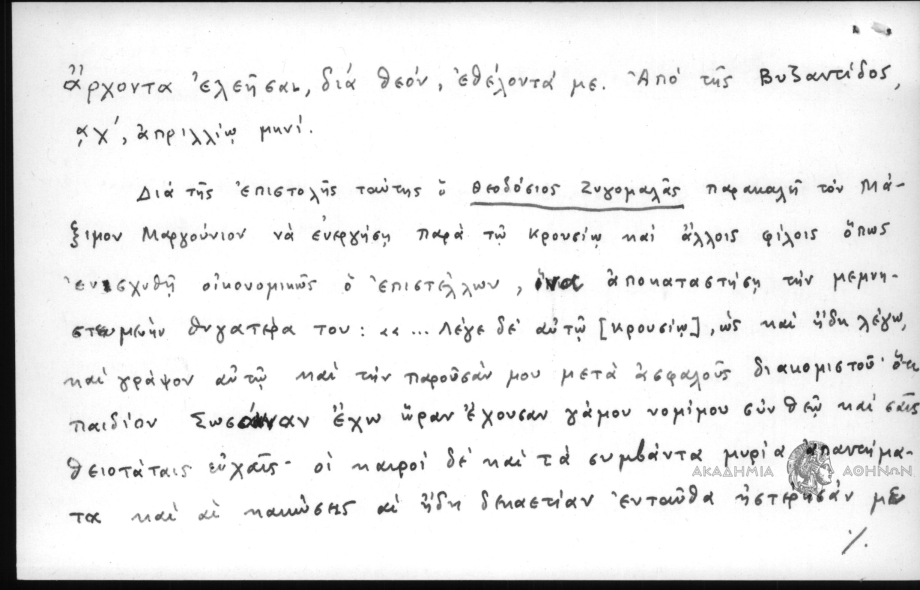 ἄρχοντα ἐλεῆσαι, διά θεόν, ἐθέλοντά με. Ἀπό τῆς Βυζαντίδος,
͵αχ΄, ἀπριλλίῳ μηνί.
Διά τῆς ἐπιστολῆς ταύτης ὁ Θεοδόσιος Ζυγομαλᾶς παρακαλῆ τόν Μά-
ξιμον Μαργούνιον νά ἐνεργήσῃ παρά τῷ Κρουσίῳ καί ἄλλοις φίλοις ὅπως
ἐνισχυθῇ οἰκονομικῶς ὁ ἐπιστέλλων, ἵνα ἀποκαταστήσῃ τήν μεμνη-
στευμένην θυγατέρα του: «... Λέγε δέ αὐτῷ [Κρουσίῳ], ὡς καί ἤδη λέγω,
καί γράψον αὐτῷ καί τήν παροῦσάν μου μετά ἀσφαλοῦς διακομιστοῦ· ὅτι
παιδίον Σωσάναν ἔχω ὥραν ἔχουσαν γάμου νομίμου σύν θεῷ καί σαῖς
θειοτάταις εὐχαῖς· οἱ καιροί δέ καί τά συμβάντα μυρία ἀπαντήμα-
τα καί αἱ κακώσεις αἱ ἤδη δεκαετίαν ἐνταῦθα ὑστέρησάν με
./.
ΑΚΑΔΗΜΙΑ ΑΘΗΝΩΝ